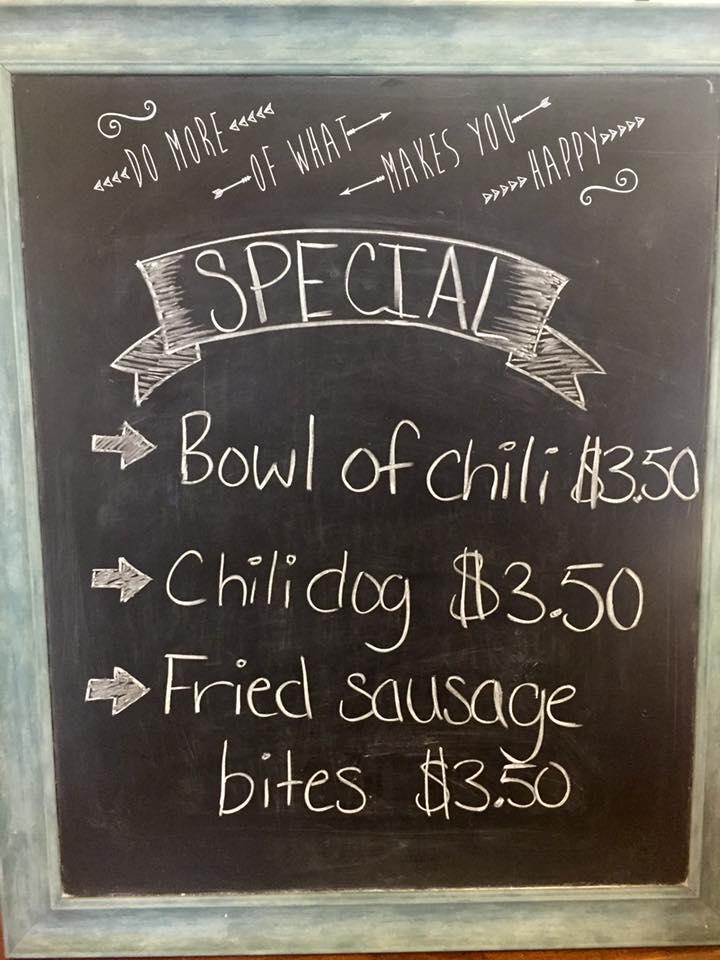 DO MORE OF WHAT MAKES YOU HAPPY
SPECIAL
Bowl of chili $3.50
Chili dog $3.50
Fried sausage
bites $3.50